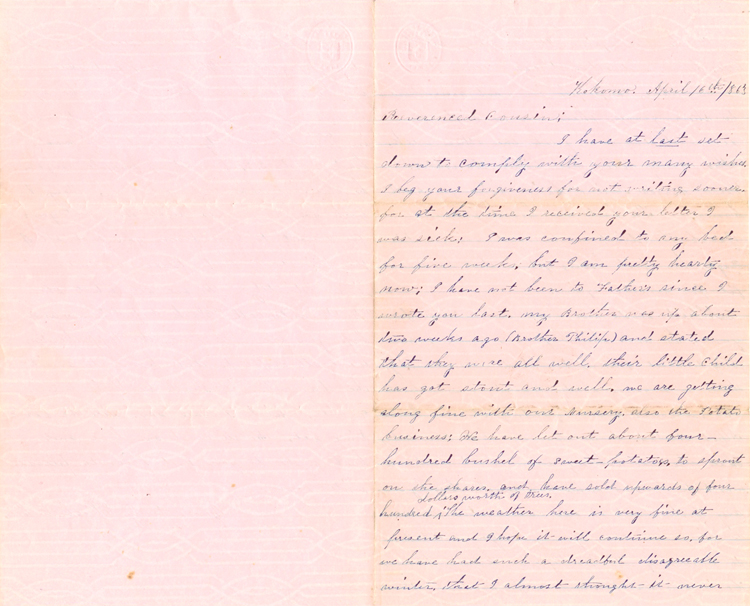 Kokomo. April 16th /86
Reverenced Cousin;
I have at last set
down to comply with your many wishes
I beg your forgiveness for not writing sooner.
for at the time I received your letter I
was sick; I was confined to my bed
for five week, but I am pretty hearty
now; I have not been to Fathers sinse I
wrote you last. my Brother was up about
two weeks ago (Brother Philip) and stated
that they were all well. their little Child
has got stout and well. we are getting
along fine with our Nursery. also the Potato
business; We have let out about four-
hundred bushel of sweet-potatoes, to sprout
on the shares. and have sold upwards of four
Dollars worth of trees.
hundred; The weather here is very fine at
present and I hope it will continue so, for
we have had such a dreadful disagreeable
winter, that I almost thought it never